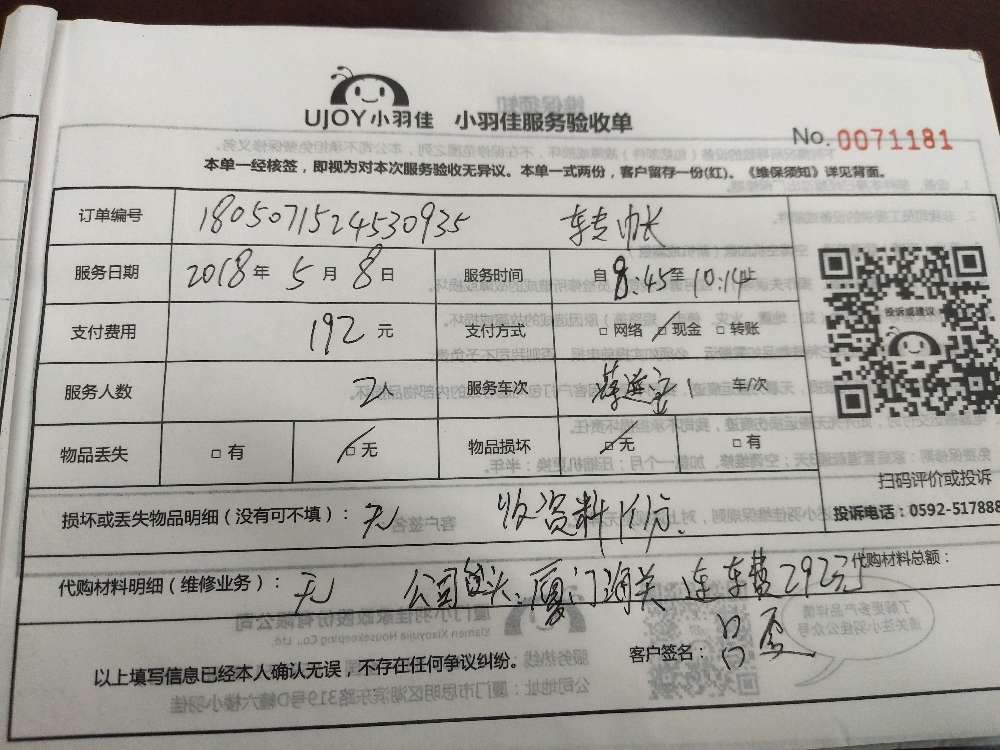 UJOY小羽佳 小羽佳服务验收单
No. 0071181
本单一经核签，即视为对本次服务验收无异议。本单一式两份，客户留存一份(红)。《维保须知》详见背面。
订单编号 1805071524530935 转帐
服务日期 2018年5月8日 服务时间 自8:45至10:14止
支付费用 192元 支付方式 □网络 □现金 □转账
投诉或建议
服务人数 2人 服务车次 1 车/次
物品丢失 □有 □无 物品损坏 □无 □有
扫码评价或投诉
损坏或丢失物品明细（没有可不填）：无 收资料1份
投诉电话：0592-517888
代购材料明细（维修业务）：无 公司抬头：厦门通关 连车费292元
代购材料总额：
以上填写信息已经本人确认无误，不存在任何争议纠纷。
客户签名：